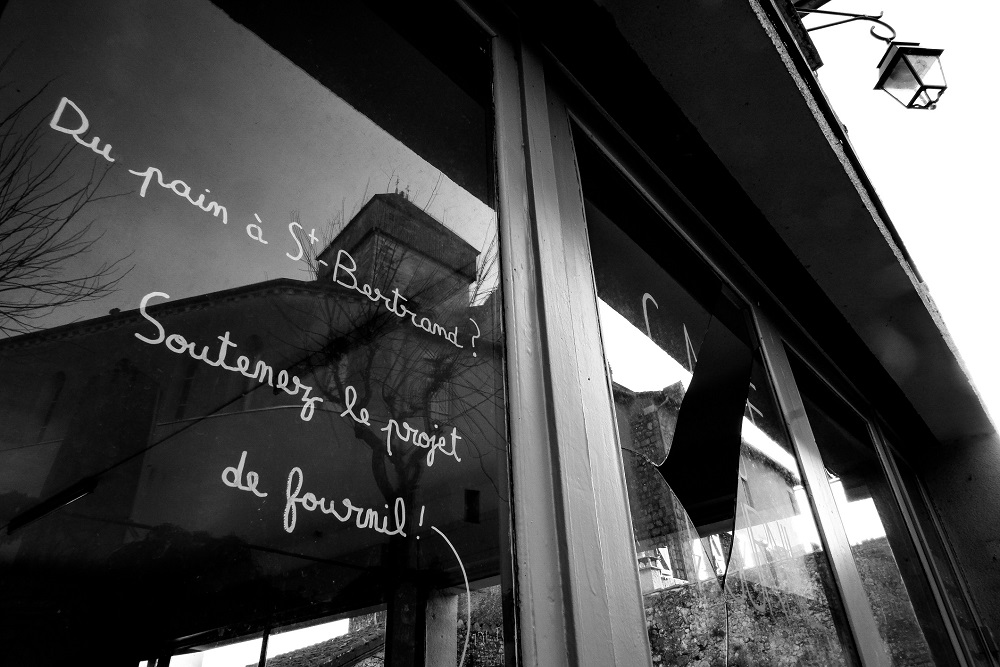 Du pain à St-Bertrand ?
Soutenez le projet
de fournil !